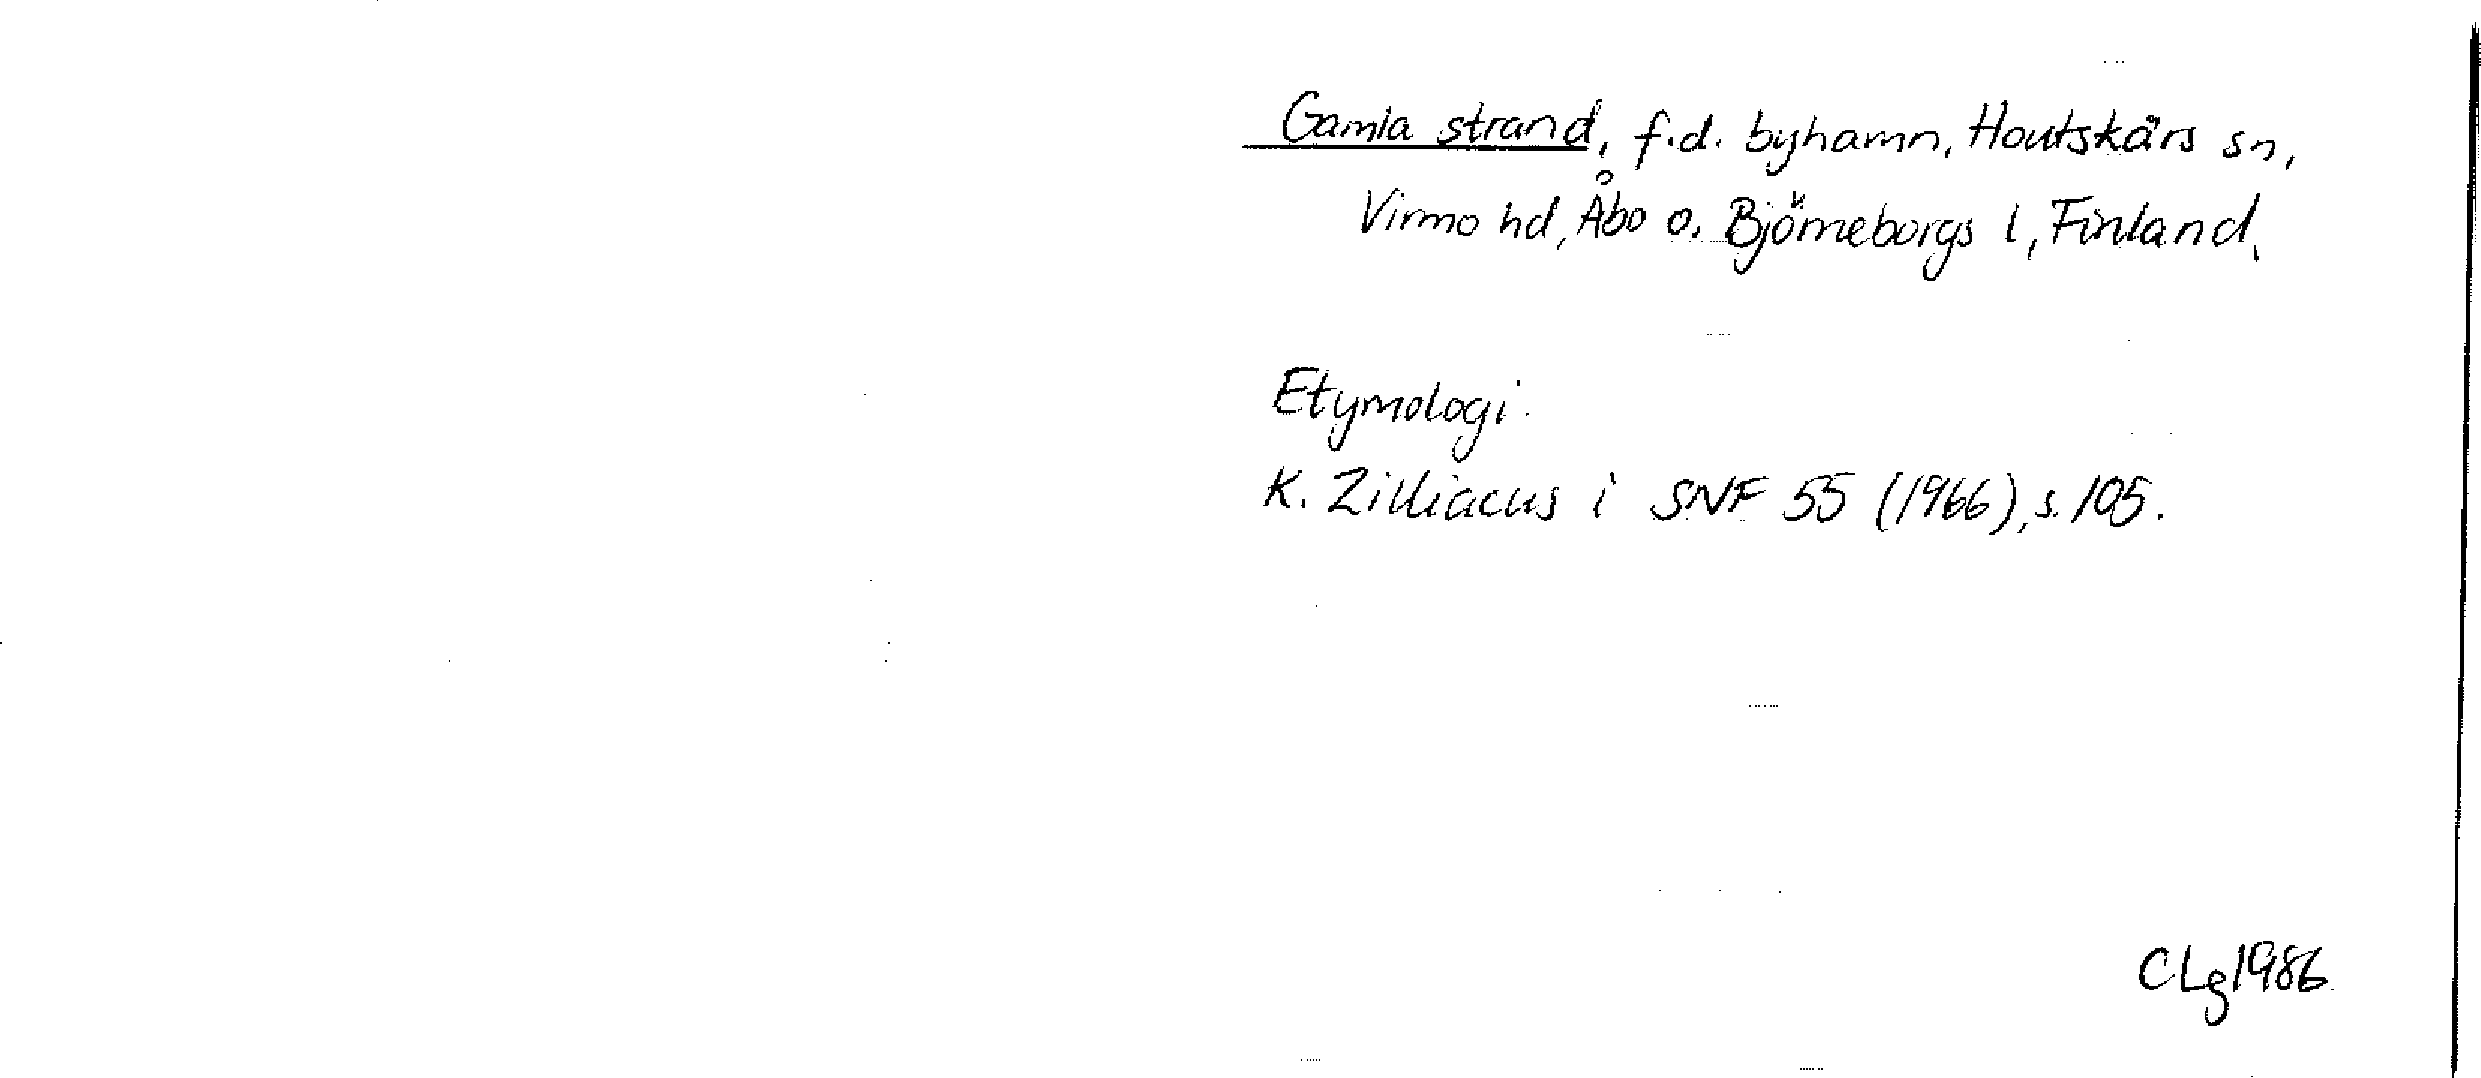 Gamla strand, f.d. byhamn, Houtskärs sn,
Virmo hd, Åbo o. Björneborgs l, Finland.
Etymologi.
K. Zilliacus i SNF 55 (1966), s. 105.
CLg 1986